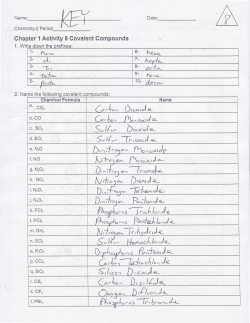 Name: KEY Date:
Chemistry-2 Period
Chapter 1 Activity 8 Covalent Compounds
1. Write down the prefixes:
1- Mono 6- hexa
2- di 7- hepta
3- Tri 8- octa
4- tetra 9- nona
5- penta 10- deca
2. Name the following covalent compounds:
Chemical Formula Name
a. CO₂ Carbon Dioxide
b. CO Carbon Monoxide
c. SO₂ Sulfur Dioxide
d. SO₃ Sulfur Trioxide
e. N₂O Dinitrogen Monoxide
f. NO Nitrogen Monoxide
g. N₂O₃ Dinitrogen Trioxide
h. NO₂ Nitrogen Dioxide
i. N₂O₄ Dinitrogen Tetroxide
j. N₂O₅ Dinitrogen Pentoxide
k. PCl₃ Phosphorus Trichloride
l. PCl₅ Phosphorus Pentachloride
m. NH₃ Nitrogen Trihydride
n. SCl₆ Sulfur Hexachloride
o. P₂O₅ Diphosphorus Pentoxide
p. CCl₄ Carbon Tetrachloride
q. SiO₂ Silicon Dioxide
r. CS₂ Carbon Disulfide
s. OF₂ Oxygen Difluoride
t. PBr₃ Phosphorus Tribromide